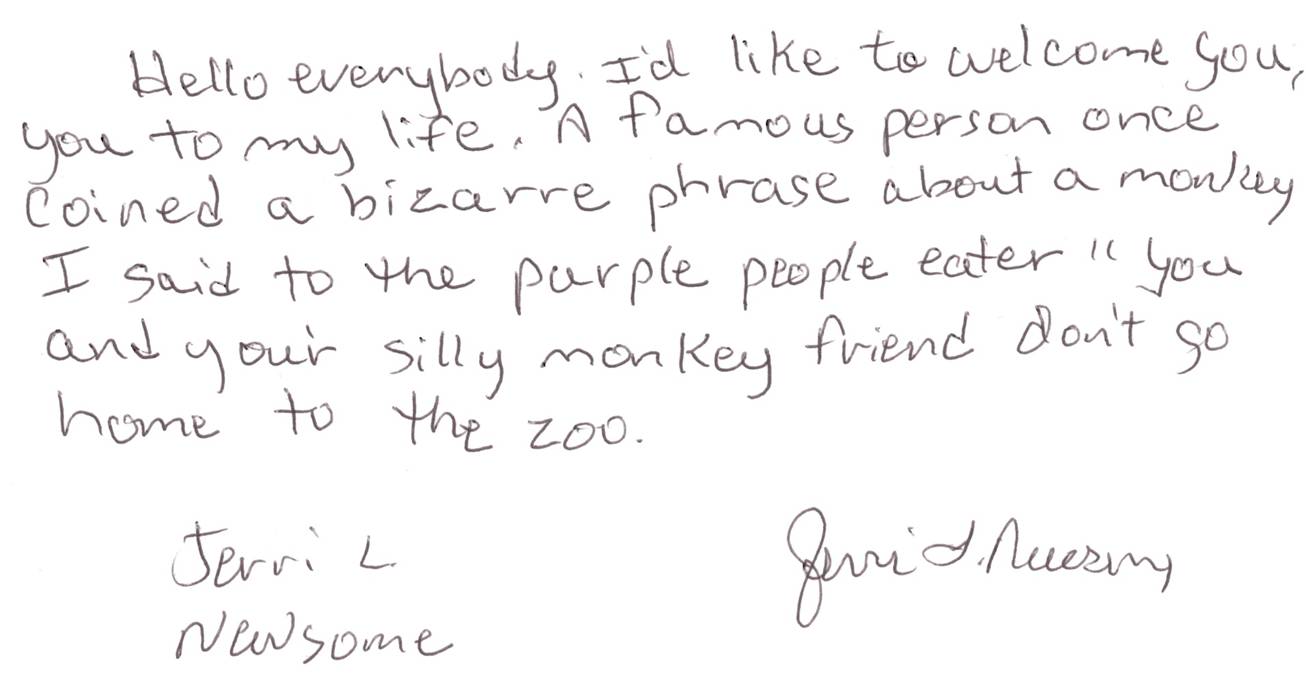 Hello everybody. I'd like to welcome you,
you to my life. A famous person once
Coined a bizarre phrase about a monkey
I said to the purple people eater "you
and your silly monkey friend don't go
home to the zoo.
Jerri L.
Newsome
Jerri L. Newsome